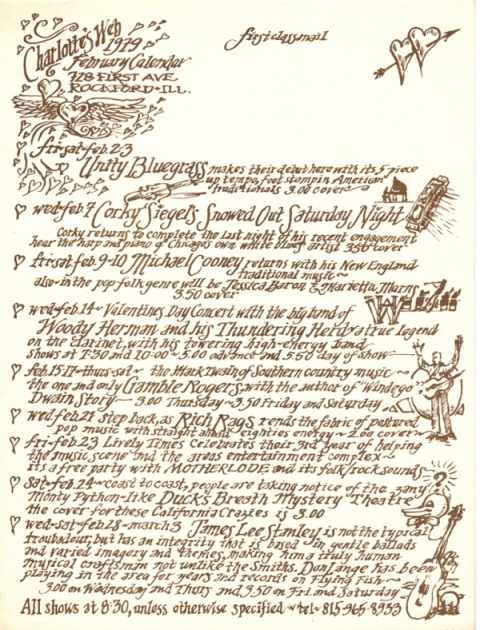 Charlotte's Web
1979
February Calendar
728 FIRST AVE
ROCKFORD·ILL.
first class mail
fri-sat-feb. 2-3
Unity Bluegrass makes their debut here with its 5 piece
up tempo, foot stompin American
traditionals 3.00 cover
wed-feb 7 Corky Siegels Snowed Out Saturday Night
Corky returns to complete the last night of his recent engagement
hear the harp and piano of Chicagos own white blues artist 3.50 cover
fri-sat-feb. 9-10 Michael Cooney returns with his New England
traditional music~
also-in the pop folk genre will be Jessica Baron & Marietta Marns
3.50 cover
wed-feb 14~Valentines Day Concert with the big band of
Woody Herman and his Thundering Herd~a true legend
on the clarinet, with his towering high-energy band
shows at 7:30 and 10:00~5.00 advance and 5.50 day of show
feb. 15-17-thurs-sat~ the Mark Twain of Southern country music~
the one and only Gamble Rogers, with the author of
Dwain Story~ 3.00 Thursday~3.50 Friday and Saturday
wed-feb 21 Step back, as Rich Rags rends the fabric of postured
pop music with straight ahead eighties energy~2.00 cover
fri-feb 23 Lively Times celebrates their 3rd year of helping
the music scene and the areas entertainment complex~
its a free party with MOTHERLODE and its folk/rock sounds
sat-feb. 24~coast to coast, people are taking notice of the zany
Monty Python-like Duck's Breath Mystery Theatre
the cover for these California Crazies is 3.00
wed-sat-feb 28-march 3 James Lee Stanley is not the typical
troubadour, but has an integrity that is based in gentle ballads
and varied imagery and themes, making him a truly human
musical craftsman not unlike the Smiths. Don Lange has been
playing in the area for years and records on Flying Fish~
3.00 on Wednesday and Thurs and 3.50 on Fri and Saturday
All shows at 8:30, unless otherwise specified~tel~815-965-8933